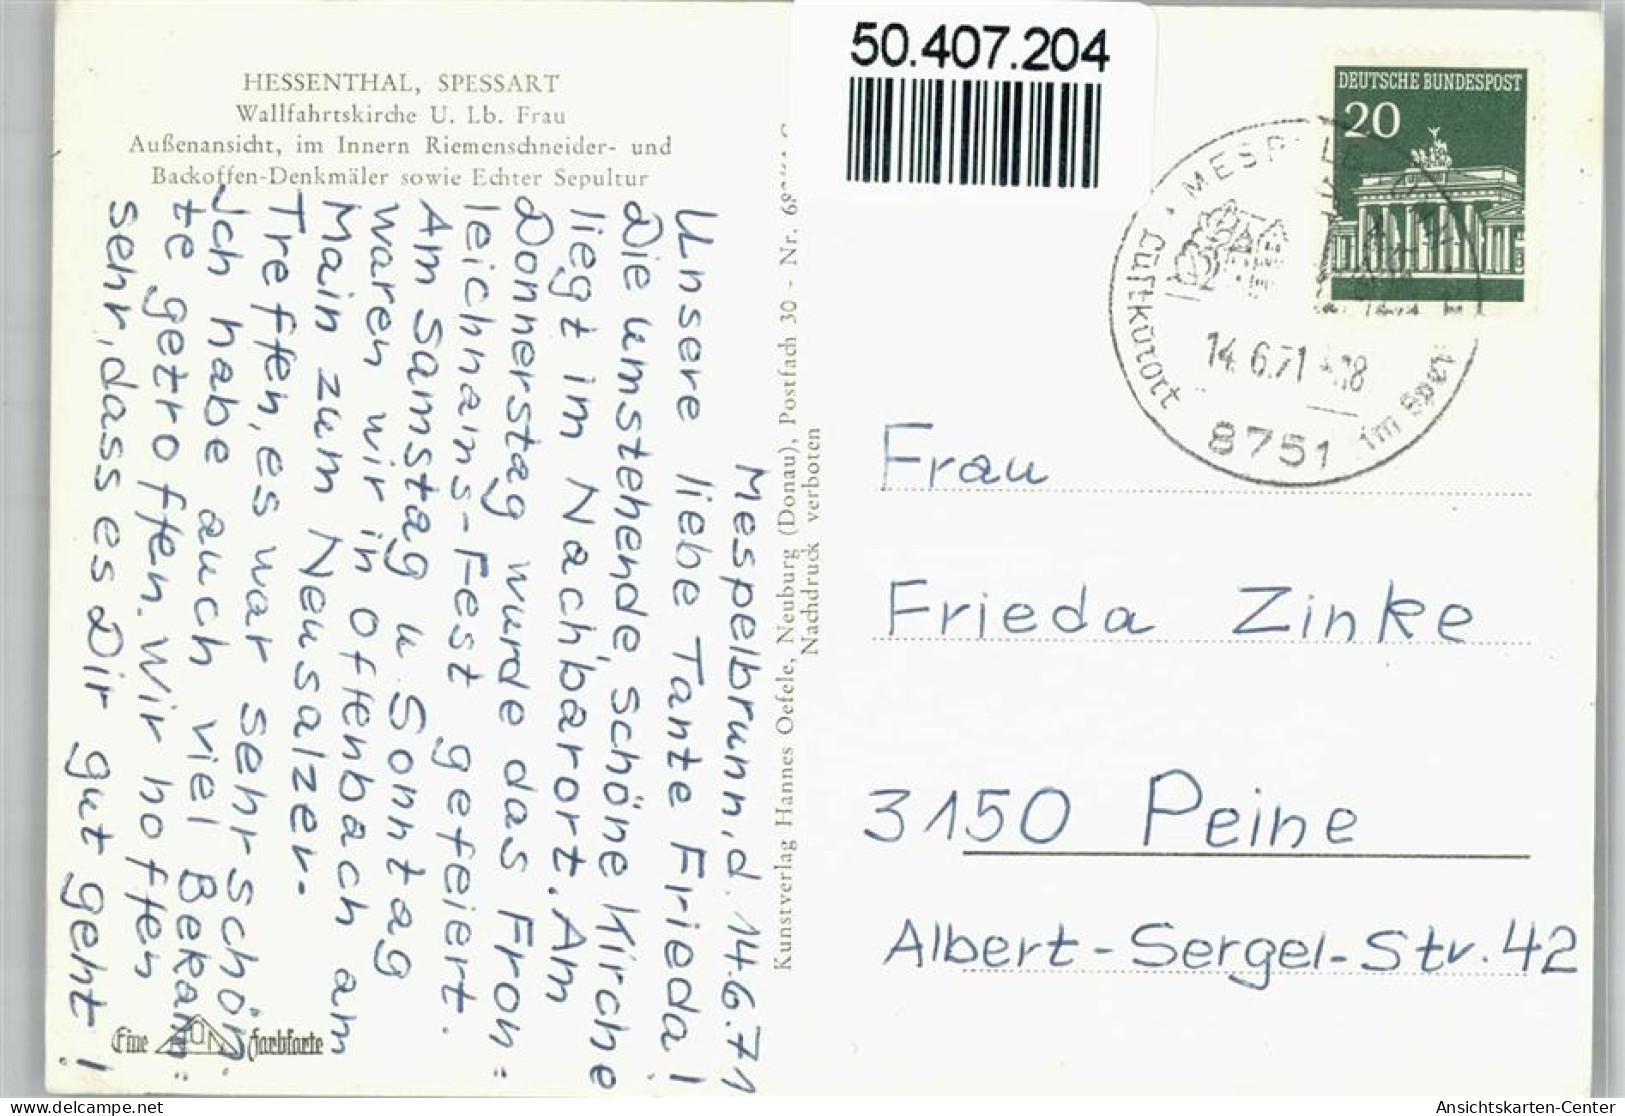 HESSENTHAL, SPESSART
Wallfahrtskirche U. Lb. Frau
Außenansicht, im Innern Riemenschneider- und
Backoffen-Denkmäler sowie Echter Sepultur
50.407.204
DEUTSCHE BUNDESPOST
20
Luftkurort
14.6.71
8751
im
Mespelbrunn, d. 14.6.71
Unsere liebe Tante Frieda!
Die umstehende, schöne Kirche
liegt im Nachbarort. Am
Donnerstag wurde das Fron=
leichnams-Fest gefeiert.
Am Samstag u. Sonntag
waren wir in Offenbach am
Main zum Neusalzer-
Treffen, es war sehr schön.
Ich habe auch viel Bekann=
te getroffen. Wir hoffen
sehr, dass es Dir gut geht!
Kunstverlag Hannes Oefele, Neuburg (Donau), Postfach 30 - Nr.
Nachdruck verboten
Frau
Frieda Zinke
3150 Peine
Albert-Sergel-Str. 42
Eine Farbkarte
delcampe.net
Ansichtskarten-Center